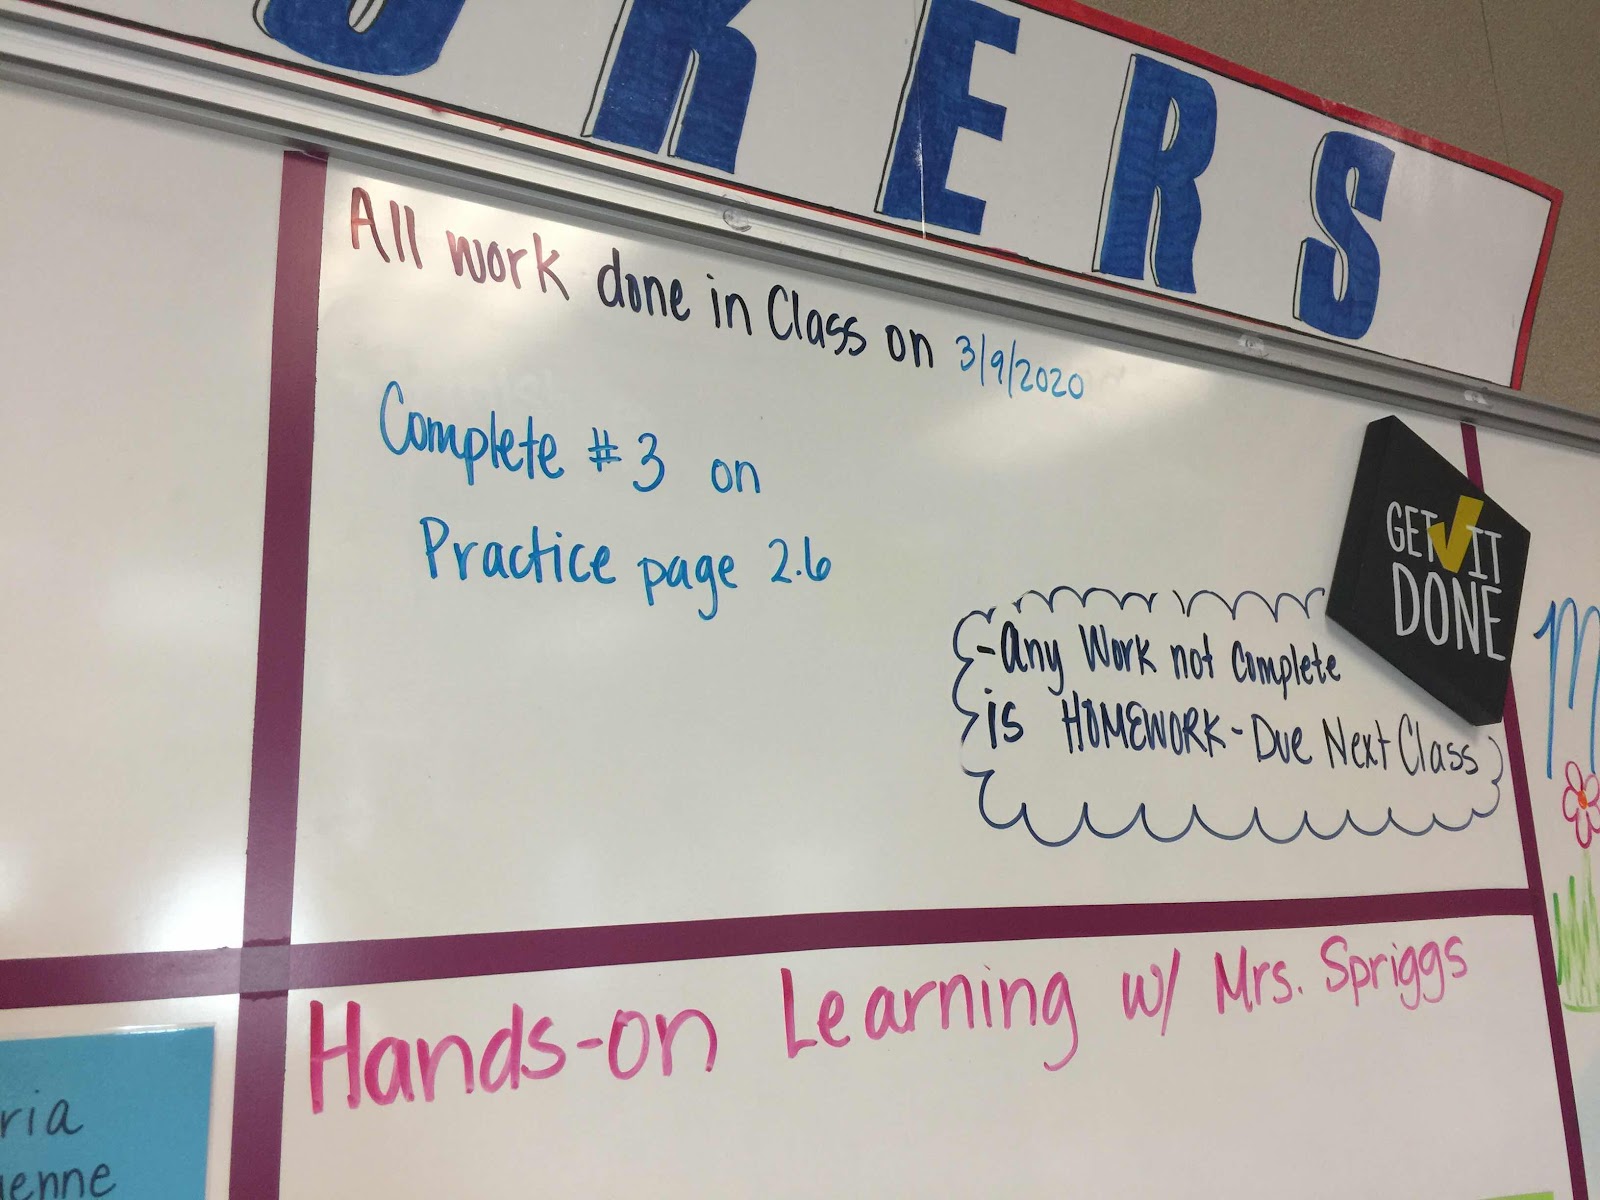 KERS
All work done in Class on 3/9/2020
Complete #3 on
Practice page 2.6
GET IT
DONE
-Any Work not complete
is HOMEWORK-Due Next Class
Hands-on Learning w/ Mrs. Spriggs
ria
enne